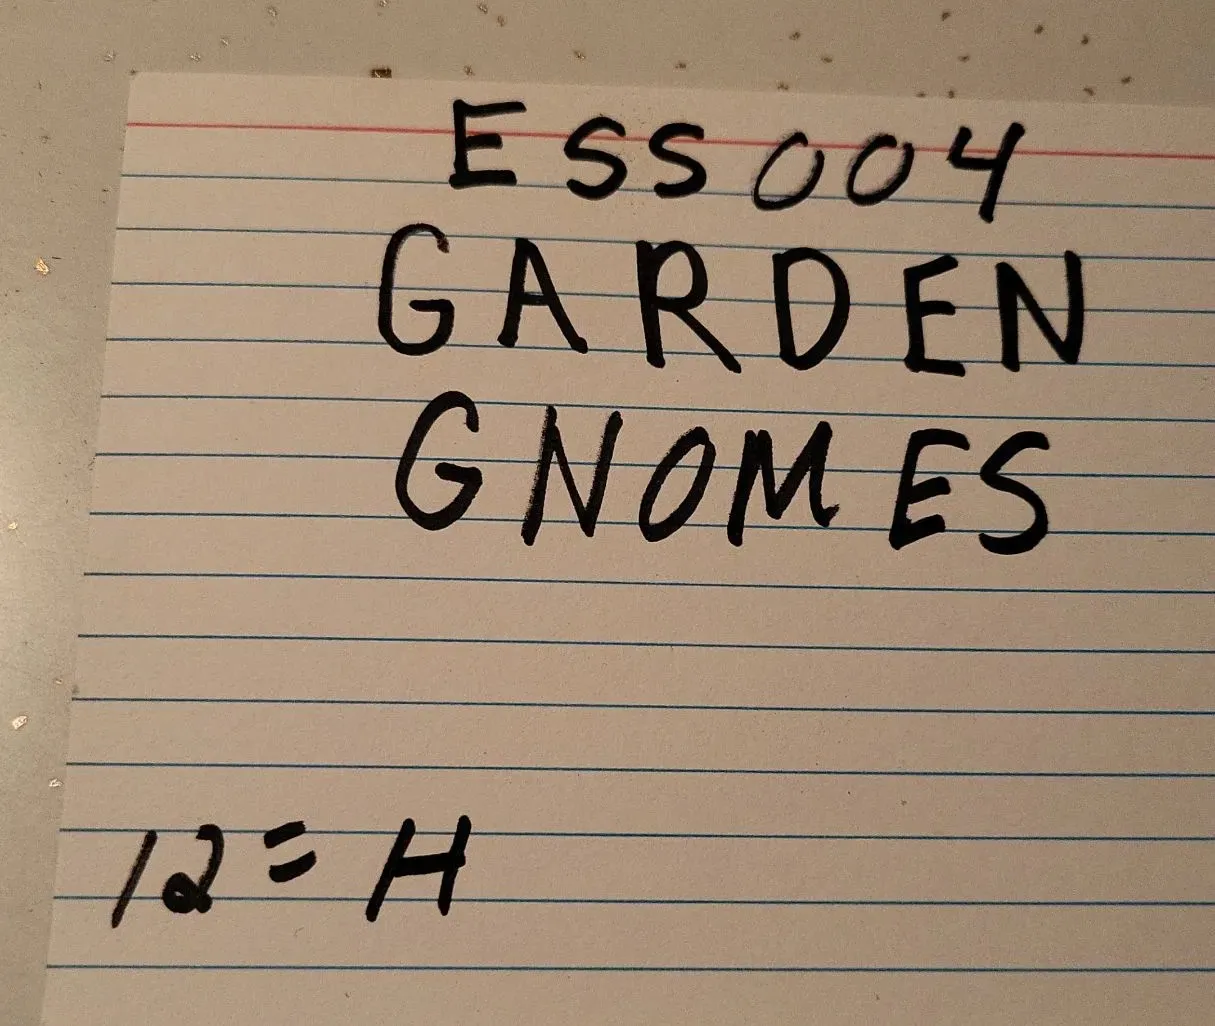 ESS004
GARDEN
GNOMES
12 = H